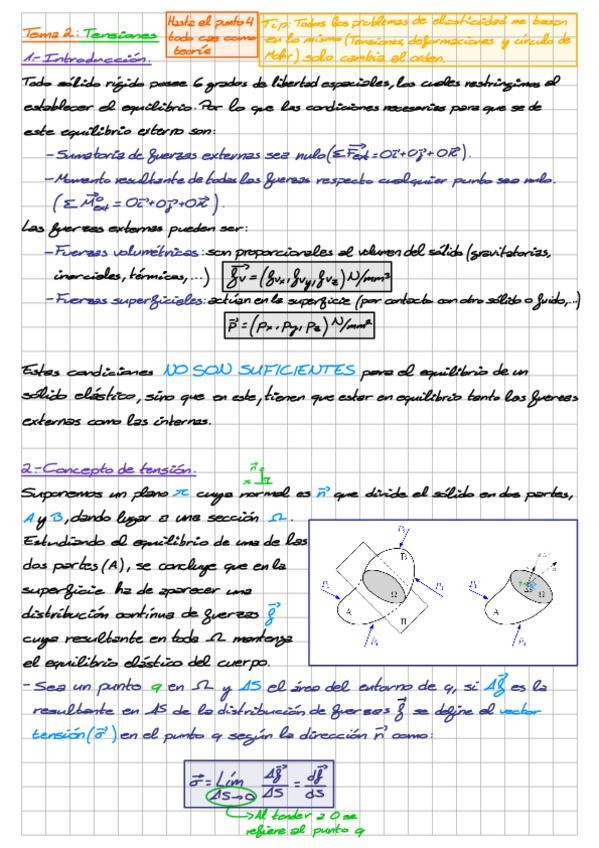 Tema 2: Tensiones
Hasta el punto 4
todo cae como
teoría
Tip: Todos los problemas de elasticidad se basan
en lo mismo (Tensiones, deformaciones y círculo de
Mohr) solo cambia el orden.
1.-Introducción.
Todo sólido rígido posee 6 grados de libertad espaciales, los cuales restringimos al
establecer el equilibrio. Por lo que las condiciones necesarias para que se de
este equilibrio externo son:
- Sumatoria de fuerzas externas sea nulo (Σ F⃗ext = 0i⃗+0j⃗+0k⃗).
- Momento resultante de todas las fuerzas respecto cualquier punto sea nulo.
(Σ M⃗⁰ext = 0i⃗+0j⃗+0k⃗).
Las fuerzas externas pueden ser:
- Fuerzas volumétricas: son proporcionales al volumen del sólido (gravitatorias,
inerciales, térmicas,...) f⃗v = (fvx, fvy, fvz) N/mm³
- Fuerzas superficiales: actúan en la superficie (por contacto con otro sólido o fluido,...)
p⃗ = (px, py, pz) N/mm²
Estas condiciones NO SON SUFICIENTES para el equilibrio de un
sólido elástico, sino que en este, tienen que estar en equilibrio tanto las fuerzas
externas como las internas.
2.-Concepto de tensión.
n⃗
π
Suponemos un plano π cuya normal es n⃗ que divide el sólido en dos partes,
A y B, dando lugar a una sección Ω.
Estudiando el equilibrio de una de las
dos partes (A), se concluye que en la
superficie ha de aparecer una
distribución continua de fuerzas f⃗
cuya resultante en toda Ω mantenga
el equilibrio elástico del cuerpo.
A
B
Ω
Π
A
Ω
- Sea un punto q en Ω y ΔS el área del entorno de q, si Δf⃗ es la
resultante en ΔS de la distribución de fuerzas f⃗ se define el vector
tensión (σ⃗) en el punto q según la dirección n⃗ como:
σ⃗ = Lím ΔS→0 Δf⃗/ΔS = df⃗/dS
Al tender a 0 se
refiere al punto q